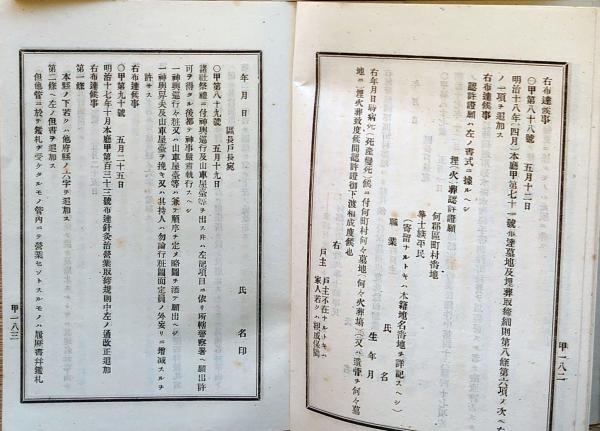 右布達候事
〇甲第八十八號 五月十二日
明治十八年(四月)本廳甲第七十一號布達墓地及埋葬取締細則第八條第六項ノ次ヘ左
ノ一項ヲ追加ス
右布達候事
認許證願ハ左ノ書式ニ據ルヘシ
埋(火)葬認許證願
何郡區町村番地
華士族平民
(寄留ナルトキハ本籍地名番地ヲ詳記スヘシ)
職業
氏名
生年月
右年月日時病死(死產變死)候ニ付何町村何々墓地(何々火葬場)ニ(又ハ遺骨ヲ何々墓
地ニ)埋火葬致度候間認許證御下渡相成度候也
右
戶主 戶主不在ナルトキハ
家人若クハ親戚保證
甲一八二
年月日
氏名印
區長戶長宛
〇甲第八十九號 五月十九日
諸社祭禮ニ付神輿巡行及山車屋臺等ヲ出ス時ハ左記項目ニ依リ所轄警察署ヘ願出許
可ヲ得タル後都テ神事嚴肅執行スヘシ
一神輿巡行ノ節又ハ山車屋臺等ハ兼テ順序ヲ定メ略圖ヲ添テ願出ヘシ
一神輿舁夫及山車屋臺ヲ挽キ又ハ其持人ハ勿論行莊圖面定員ノ外妄リニ增減スルヲ
許サス
右布達候事
〇甲第九十號 五月二十五日
明治十七年十月本廳甲第百三十三號布達針灸治營業取締規則中左ノ通改正追加
右布達候事
第一條
本縣ノ下若クハ他府縣ノ六字ヲ追加ス
第二條ヘ左ノ但書ヲ追加ス
但他管ニ於テ鑑札ヲ受ケタルモノ管內ニテ營業セントスルモノハ履歷書幷鑑札
甲一八三